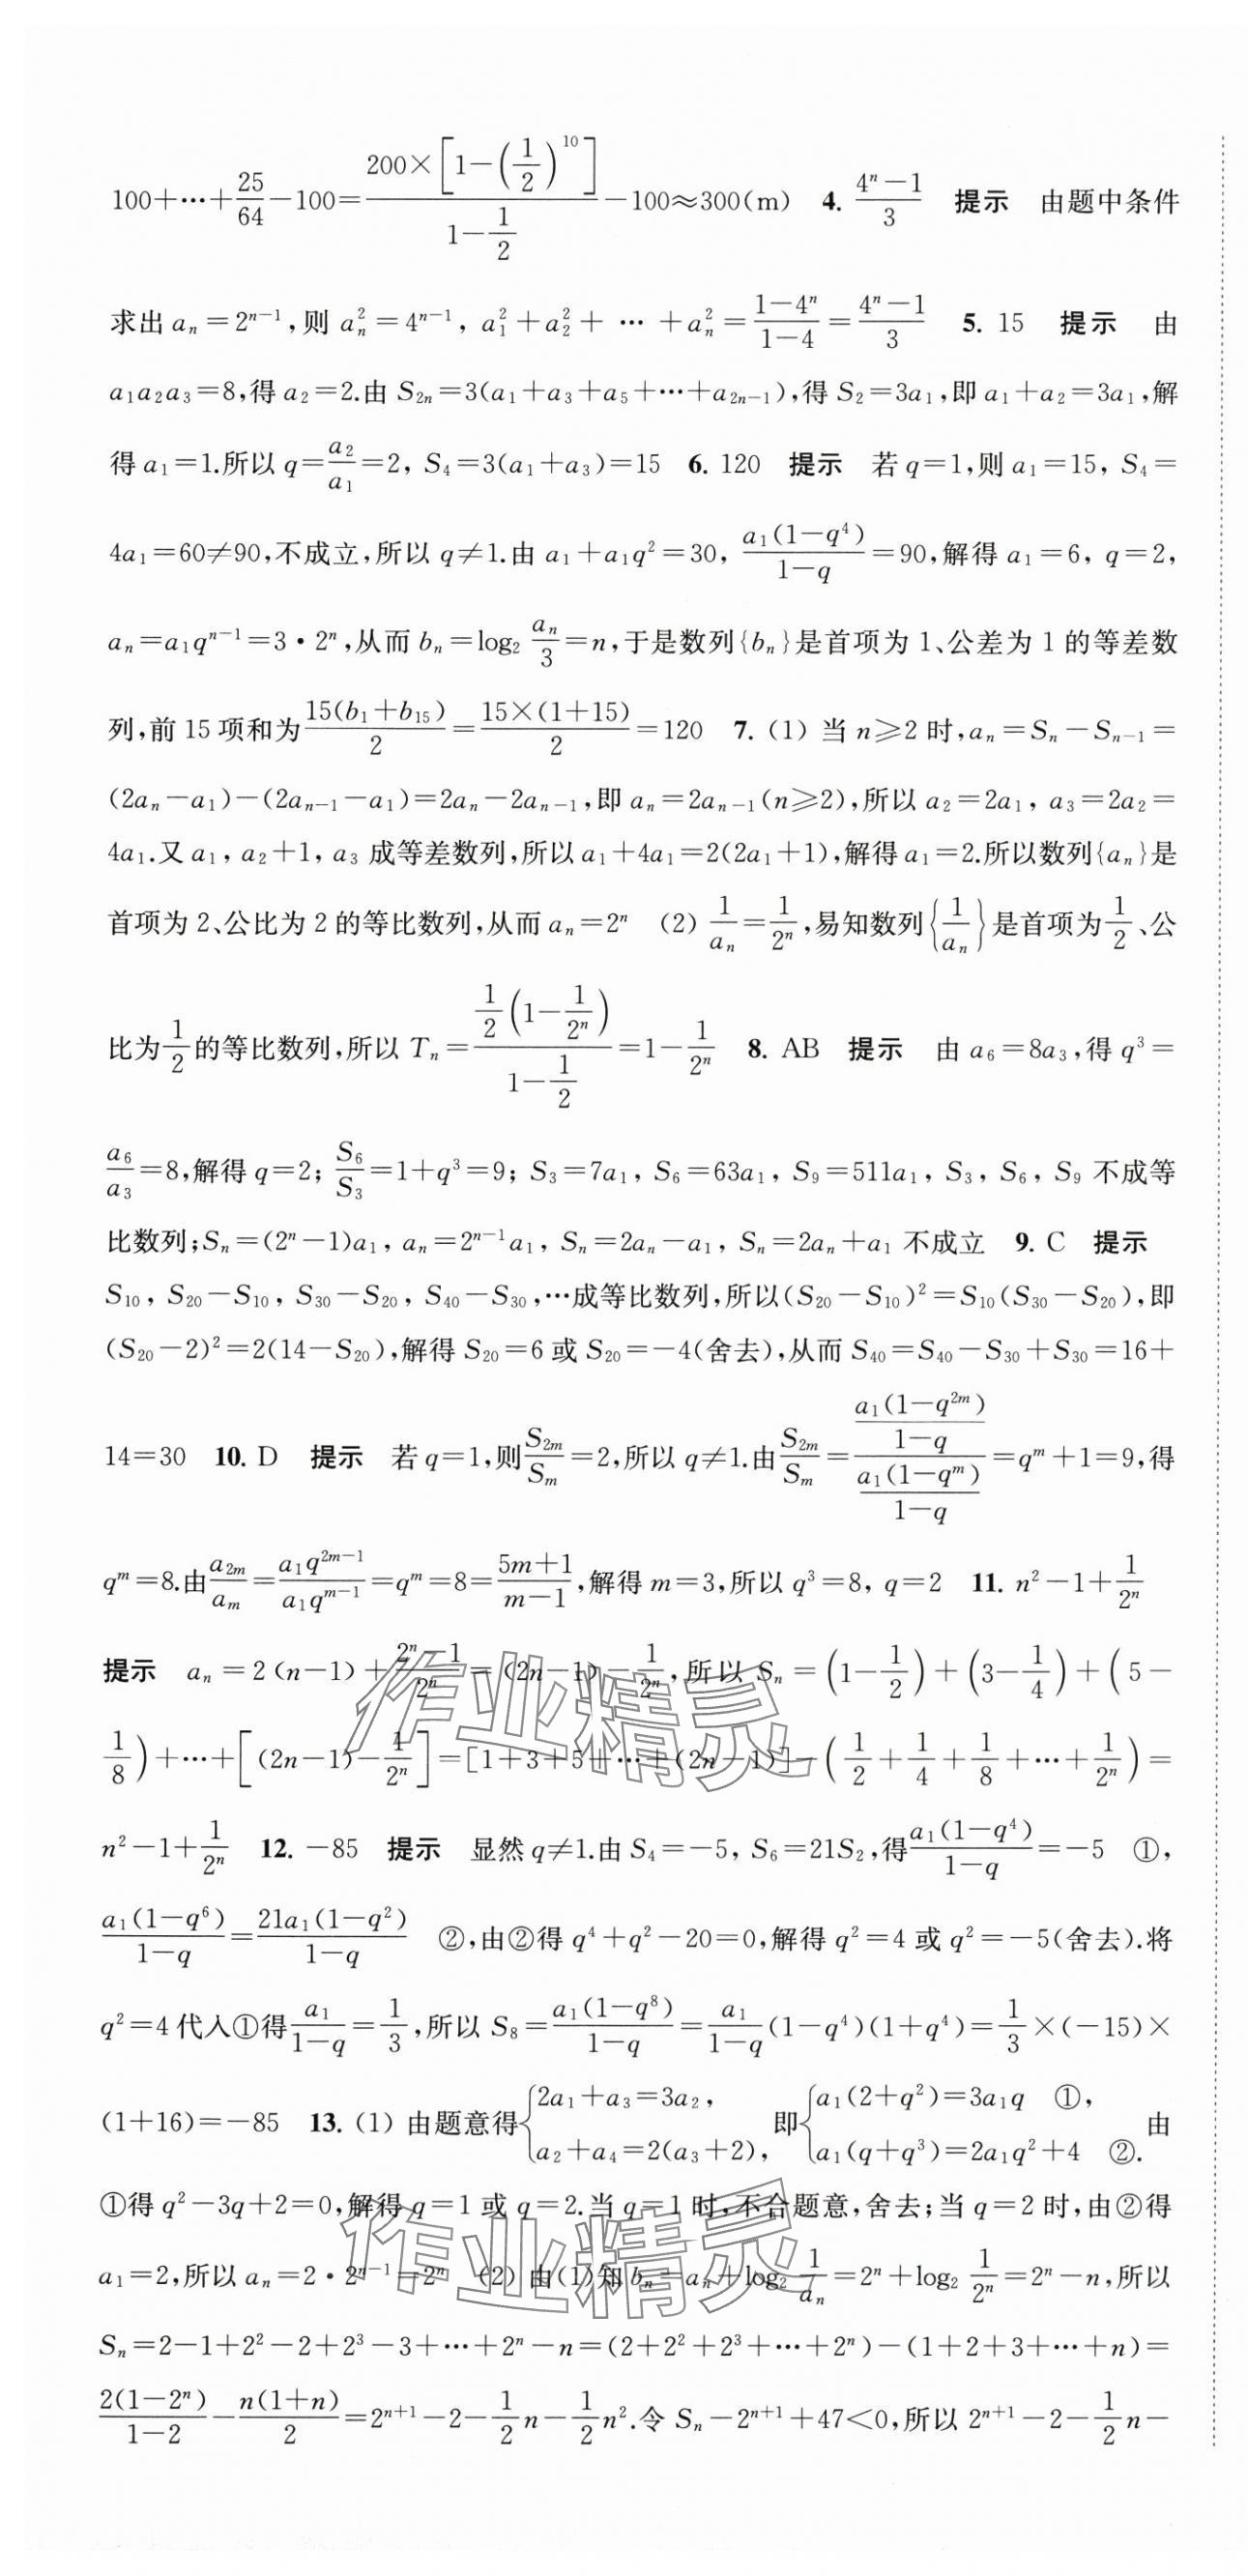 100+⋯+25/64-100=200×[1-(1/2)^10]/(1-1/2)-100≈300(m) 4. (4^n-1)/3 提示 由题中条件
求出 a_n=2^{n-1},则 a_n^2=4^{n-1}, a_1^2+a_2^2+ ⋯ +a_n^2=(1-4^n)/(1-4)=(4^n-1)/3 5. 15 提示 由
a_1a_2a_3=8,得 a_2=2.由 S_{2n}=3(a_1+a_3+a_5+⋯+a_{2n-1}),得 S_2=3a_1,即 a_1+a_2=3a_1,解
得 a_1=1.所以 q=a_2/a_1=2, S_4=3(a_1+a_3)=15 6. 120 提示 若 q=1,则 a_1=15, S_4=
4a_1=60≠90,不成立,所以 q≠1.由 a_1+a_1q^2=30, a_1(1-q^4)/(1-q)=90,解得 a_1=6, q=2,
a_n=a_1q^{n-1}=3·2^n,从而 b_n=log_2 a_n/3=n,于是数列{b_n}是首项为 1、公差为 1 的等差数
列,前 15 项和为 15(b_1+b_{15})/2=15×(1+15)/2=120 7. (1) 当 n≥2 时,a_n=S_n-S_{n-1}=
(2a_n-a_1)-(2a_{n-1}-a_1)=2a_n-2a_{n-1},即 a_n=2a_{n-1}(n≥2),所以 a_2=2a_1, a_3=2a_2=
4a_1.又 a_1, a_2+1, a_3 成等差数列,所以 a_1+4a_1=2(2a_1+1),解得 a_1=2.所以数列{a_n}是
首项为 2、公比为 2 的等比数列,从而 a_n=2^n (2) 1/a_n=1/2^n,易知数列{1/a_n}是首项为1/2、公
比为1/2的等比数列,所以 T_n=1/2(1-1/2^n)/(1-1/2)=1-1/2^n 8. AB 提示 由 a_6=8a_3,得 q^3=
a_6/a_3=8,解得 q=2; S_6/S_3=1+q^3=9; S_3=7a_1, S_6=63a_1, S_9=511a_1, S_3, S_6, S_9 不成等
比数列;S_n=(2^n-1)a_1, a_n=2^{n-1}a_1, S_n=2a_n-a_1, S_n=2a_n+a_1 不成立 9. C 提示
S_{10}, S_{20}-S_{10}, S_{30}-S_{20}, S_{40}-S_{30},⋯成等比数列,所以(S_{20}-S_{10})^2=S_{10}(S_{30}-S_{20}),即
(S_{20}-2)^2=2(14-S_{20}),解得 S_{20}=6 或 S_{20}=-4(舍去),从而 S_{40}=S_{40}-S_{30}+S_{30}=16+
14=30 10. D 提示 若 q=1,则S_{2m}/S_m=2,所以 q≠1.由S_{2m}/S_m=[a_1(1-q^{2m})/(1-q)]/[a_1(1-q^m)/(1-q)]=q^m+1=9,得
q^m=8.由a_{2m}/a_m=a_1q^{2m-1}/a_1q^{m-1}=q^m=8=(5m+1)/(m-1),解得 m=3,所以 q^3=8, q=2 11. n^2-1+1/2^n
提示 a_n=2(n-1)+(2^n-1)/2^n=(2n-1)-1/2^n,所以 S_n=(1-1/2)+(3-1/4)+(5-
1/8)+⋯+[(2n-1)-1/2^n]=[1+3+5+⋯+(2n-1)]-(1/2+1/4+1/8+⋯+1/2^n)=
n^2-1+1/2^n 12. -85 提示 显然 q≠1.由 S_4=-5, S_6=21S_2,得a_1(1-q^4)/(1-q)=-5 ①,
a_1(1-q^6)/(1-q)=21a_1(1-q^2)/(1-q) ②,由②得 q^4+q^2-20=0,解得 q^2=4 或 q^2=-5(舍去).将
q^2=4 代入①得a_1/(1-q)=1/3,所以 S_8=a_1(1-q^8)/(1-q)=a_1/(1-q)(1-q^4)(1+q^4)=1/3×(-15)×
(1+16)=-85 13. (1) 由题意得{2a_1+a_3=3a_2, a_2+a_4=2(a_3+2), 即{a_1(2+q^2)=3a_1q ①, a_1(q+q^3)=2a_1q^2+4 ②. 由
①得 q^2-3q+2=0,解得 q=1 或 q=2.当 q=1 时,不合题意,舍去;当 q=2 时,由②得
a_1=2,所以 a_n=2·2^{n-1}=2^n (2) 由(1)知 b_n=a_n+log_2 1/a_n=2^n+log_2 1/2^n=2^n-n,所以
S_n=2-1+2^2-2+2^3-3+⋯+2^n-n=(2+2^2+2^3+⋯+2^n)-(1+2+3+⋯+n)=
2(1-2^n)/(1-2)-n(1+n)/2=2^{n+1}-2-1/2n-1/2n^2.令 S_n-2^{n+1}+47<0,所以 2^{n+1}-2-1/2n-
作业精灵
作业精灵